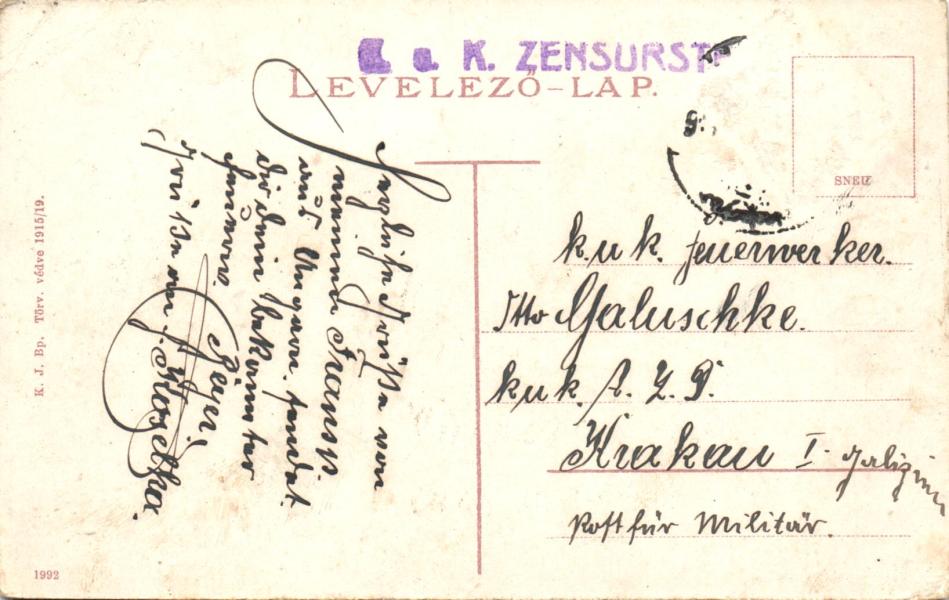 K. ZENSURST
LEVELEZŐ-LAP.
SNEIZ
Herzliche Grüße von
meinem Transp.
aus Ungarn sendet
dir dein bekannter
Ferwer.
Grüße an
k. u k. Feuerwerker.
Otto Galuschke.
k u k.
Krakau I. Galizien
Post für Militär.
K. J. Bp. Törv. védve 1915/19.
1992